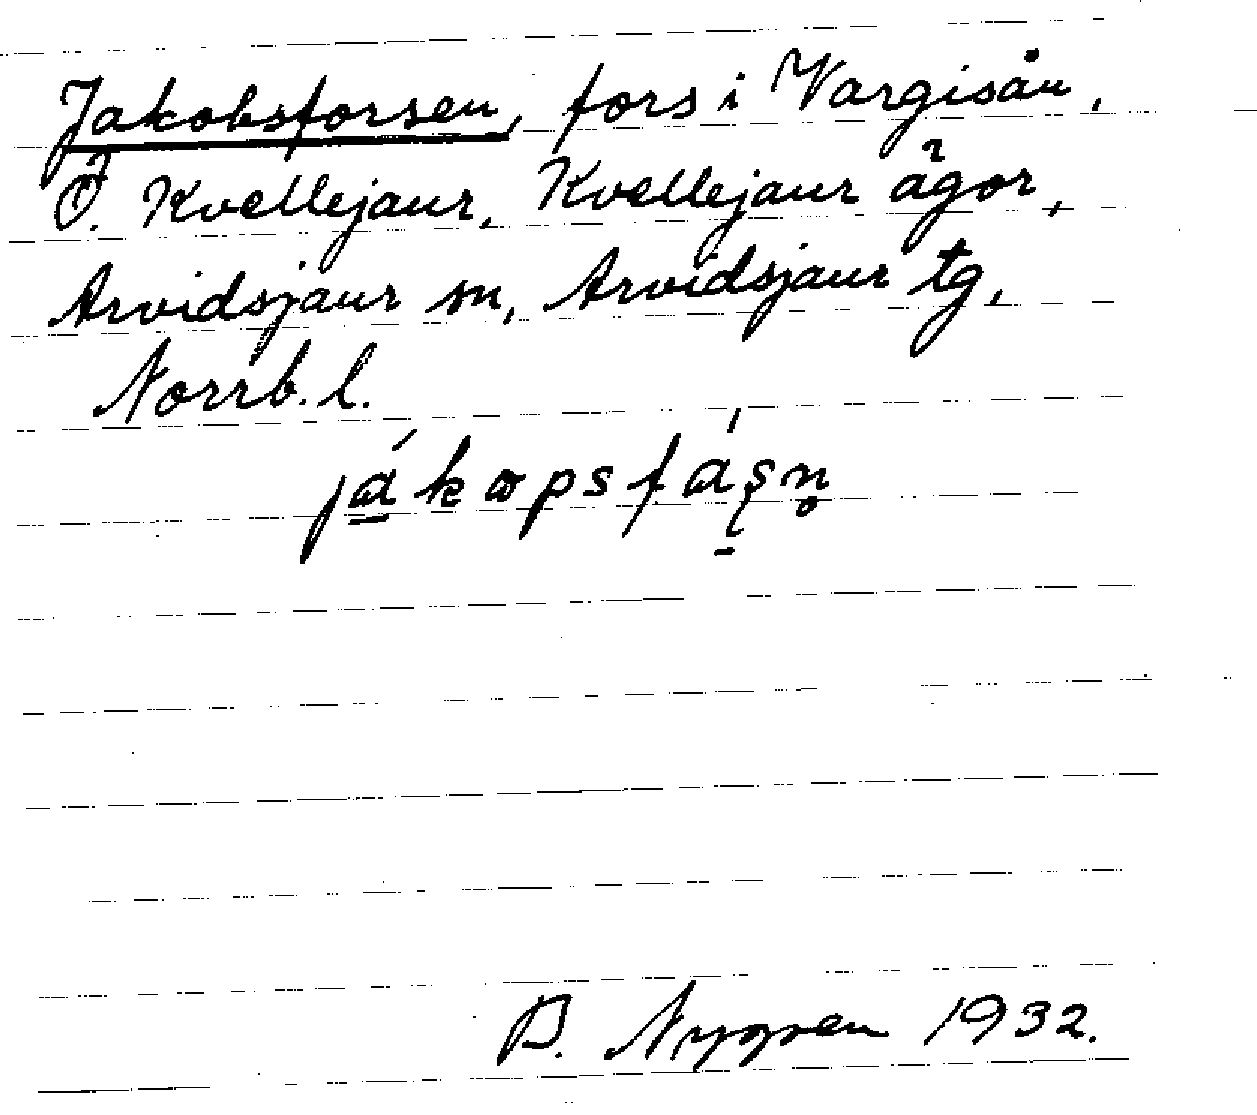 Jakobsforsen, fors i Vargisån,
Ö. Kvellejaur, Kvellejaur ägor,
Arvidsjaur sn, Arvidsjaur tg,
Norrb. l.
jákopsfáșn̥
B. Nygren 1932.